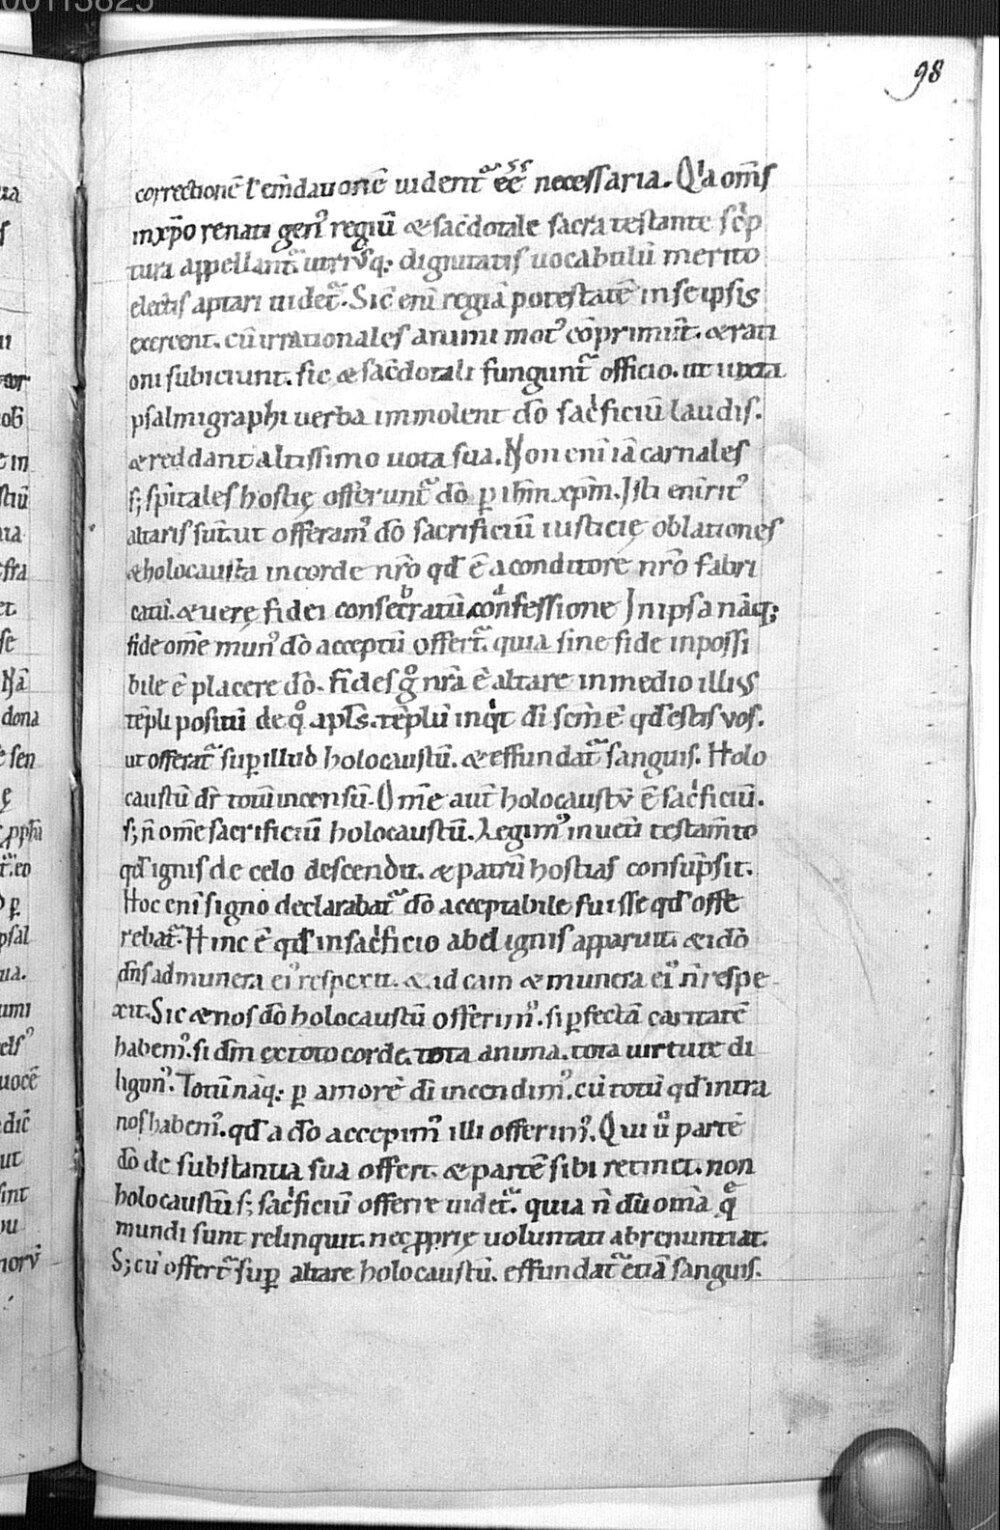 98
correctionē ł em̄dationē uident᷑ eē necessaria. Qͥa om̄s
in xp̄o renati genꝰ regiū & sac̄dotale sacra testante scͥp
tura appellant᷑. utriusq; dignitatis uocabulū merito
electis aptari uidet᷑. Sic̄ eni regiā potestatē in se ipsis
exercent. cū irrationales animi motꝰ cōprimūt. & rati
oni subiciunt. sic & sac̄dotali fungunt᷑ officio. ut iuxta
psalmigraphi uerba immolent dō sacͥficiū laudis.
& reddant altissimo uota sua. Non eni iā carnales
s; sp̄itales hostię offerunt᷑ dō ꝑ ih̄m xp̄m. Isti
altaris sūt. ut offeramꝰ dō sacrificiū iusticię oblationes
& holocausta in corde nr̄o qd̄ ē a conditore nr̄o fabri
catū. & uerę fidei consecratū confessione In ipsa nāq;
fide om̄e munꝰ dō acceptū offert᷑. quia sine fide inpossi
bile ē placere dō. fides gͦ nr̄a ē altare in medio illiꝰ
tēpli positū de qͦ. apl̄s. tēplū inqͥt di scm̄ ē qd̄ estis uos.
ut offerat᷑ suꝑ illud holocaustū. & effundat᷑ sanguis. Holo
caustū dr̄ totū incensū. Om̄e aut̄ holocaustū ē sacͥficiū.
s; n̄ om̄e sacrificiū holocaustū. Legimꝰ in ueti testam̄to
qd̄ ignis de celo descendit. & patrū hostias consūpsit.
Hoc eni signo declarabat᷑ dō acceptabile fuisse qd̄ offe
rebat᷑. Hinc ē qd̄ in sacͥficio abel ignis apparuit. & idō
dn̄s ad munera eiꝰ respexit. & ad cain & munera eiꝰ n̄ respe
xit. Sic & nos dō holocaustū offerimꝰ. si ꝑfectā caritatē
habemꝰ. si dm̄ ex toto corde. tota anima. tota uirtute di
ligimꝰ. Totū nāq; ꝑ amorē di incendimꝰ. cū totū qd̄ intra
nos habemꝰ. qd̄ a dō accepimꝰ illi offerimꝰ. Qui uͦ partē
dō de substantia sua offert. & partē sibi retinet. non
holocaustū s; sacͥficiū offerre uidet᷑. quia n̄ dū om̄ia q̄
mundi sunt relinquit. nec ꝓprię uoluntati abrenuntiat.
S; cū offert᷑ suꝑ altare holocaustū. effundat᷑ etiā sanguis.